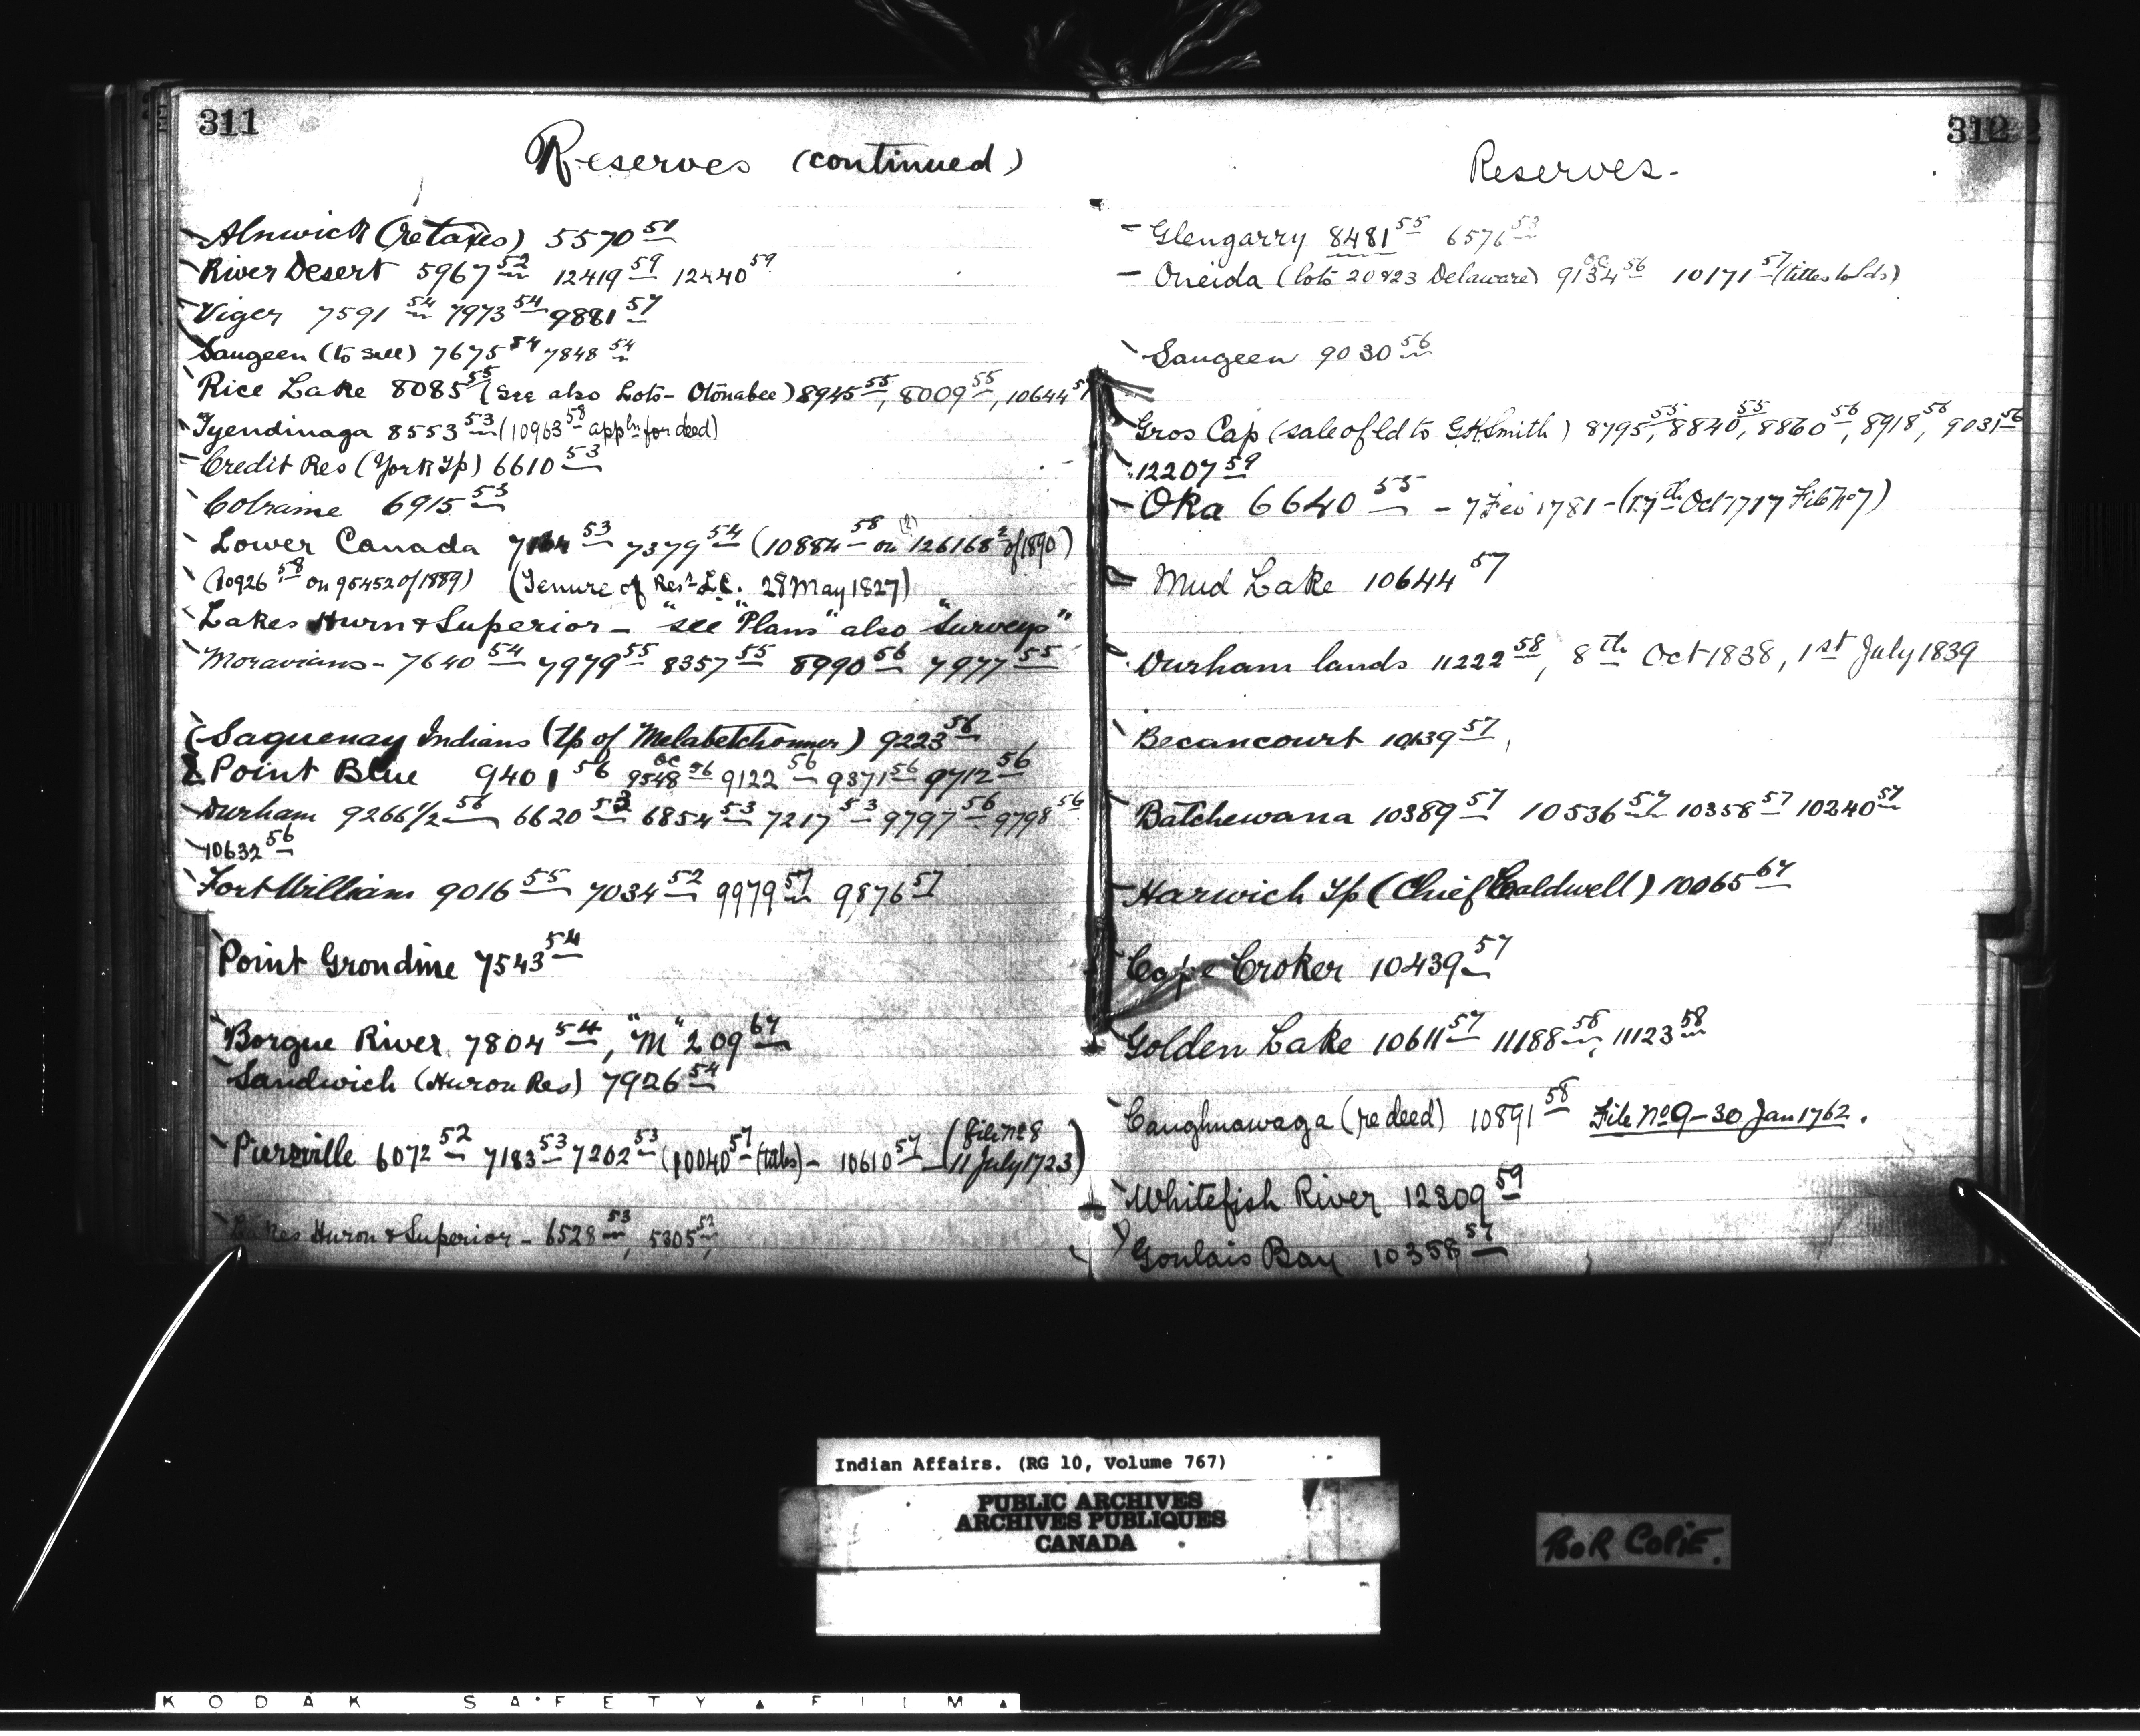 311
Reserves (continued)
Alnwick (re taxes) 5570 51
River Desert 5967 52 12419 59 12440 59
Viger 7591 54 7973 54 9881 57
Saugeen (to sell) 7675 54 7848 54
Rice Lake 8085 55 (see also Lots - Otonabee) 8945 55, 8009 55, 10644 57
Tyendinaga 8553 53 (10963 58 appln for deed)
Credit Res (York Tp) 6610 53
Colraine 6915 53
Lower Canada 7164 53 7379 54 (10884 58 on (2) 126168 2 of 1890)
(10926 58 on 95452 of 1889) (Tenure of Res. L.C. 28 May 1827)
Lakes Hurn & Superior - "see "Plans" also "Surveys"
Moravians - 7640 54 7979 55 8357 55 8990 56 7977 55
(Saguenay Indians (Tp of Metabetchouan) 9223 56
& Point Blue 9401 56 9548 OC 56 9122 56 9371 56 9712 56
Durham 9266 1/2 56 6620 53 6854 53 7217 53 9797 56 9798 56
10632 56
Fort William 9016 55 7034 52 9979 57 9876 57
Point Grondine 7543 54
Borgne River 7804 54, "M" 209 67
Sandwich (Huron Res) 7926 54
Pierreville 6072 52 7183 53 7202 53 (10040 57 (titles) - 10610 57 - (File No 8 11 July 1723)
Lakes Huron & Superior - 6528 53, 5305 51
312
Reserves -
Glengarry 8481 55 6576 53
Oneida (lots 20 & 23 Delaware) 9134 OC 56 10171 57 (titles to lds)
Saugeen 9030 56
Gros Cap (sale of ld to G.K. Smith) 8795 55, 8840 55, 8860 56, 8918 56, 9031 56
12207 59
Oka 6640 55 - 7 Fev 1781 - (17th Oct 1717 File No 7)
Mud Lake 10644 57
Durham lands 11222 58, 8th Oct 1838, 1st July 1839
Becancourt 10639 57,
Batchewana 10389 57 10536 57 10358 57 10240 57
Harwich Tp (Chief Caldwell) 10065 67
Cape Croker 10439 57
Golden Lake 10611 57 11188 58, 11123 58
Caughnawaga (re deed) 10891 58 File No 9 - 30 Jan 1762.
Whitefish River 12309 59
Goulais Bay 10358 57
Indian Affairs. (RG 10, Volume 767)
PUBLIC ARCHIVES
ARCHIVES PUBLIQUES
CANADA
POOR COPIE.
KODAK SAFETY FILM